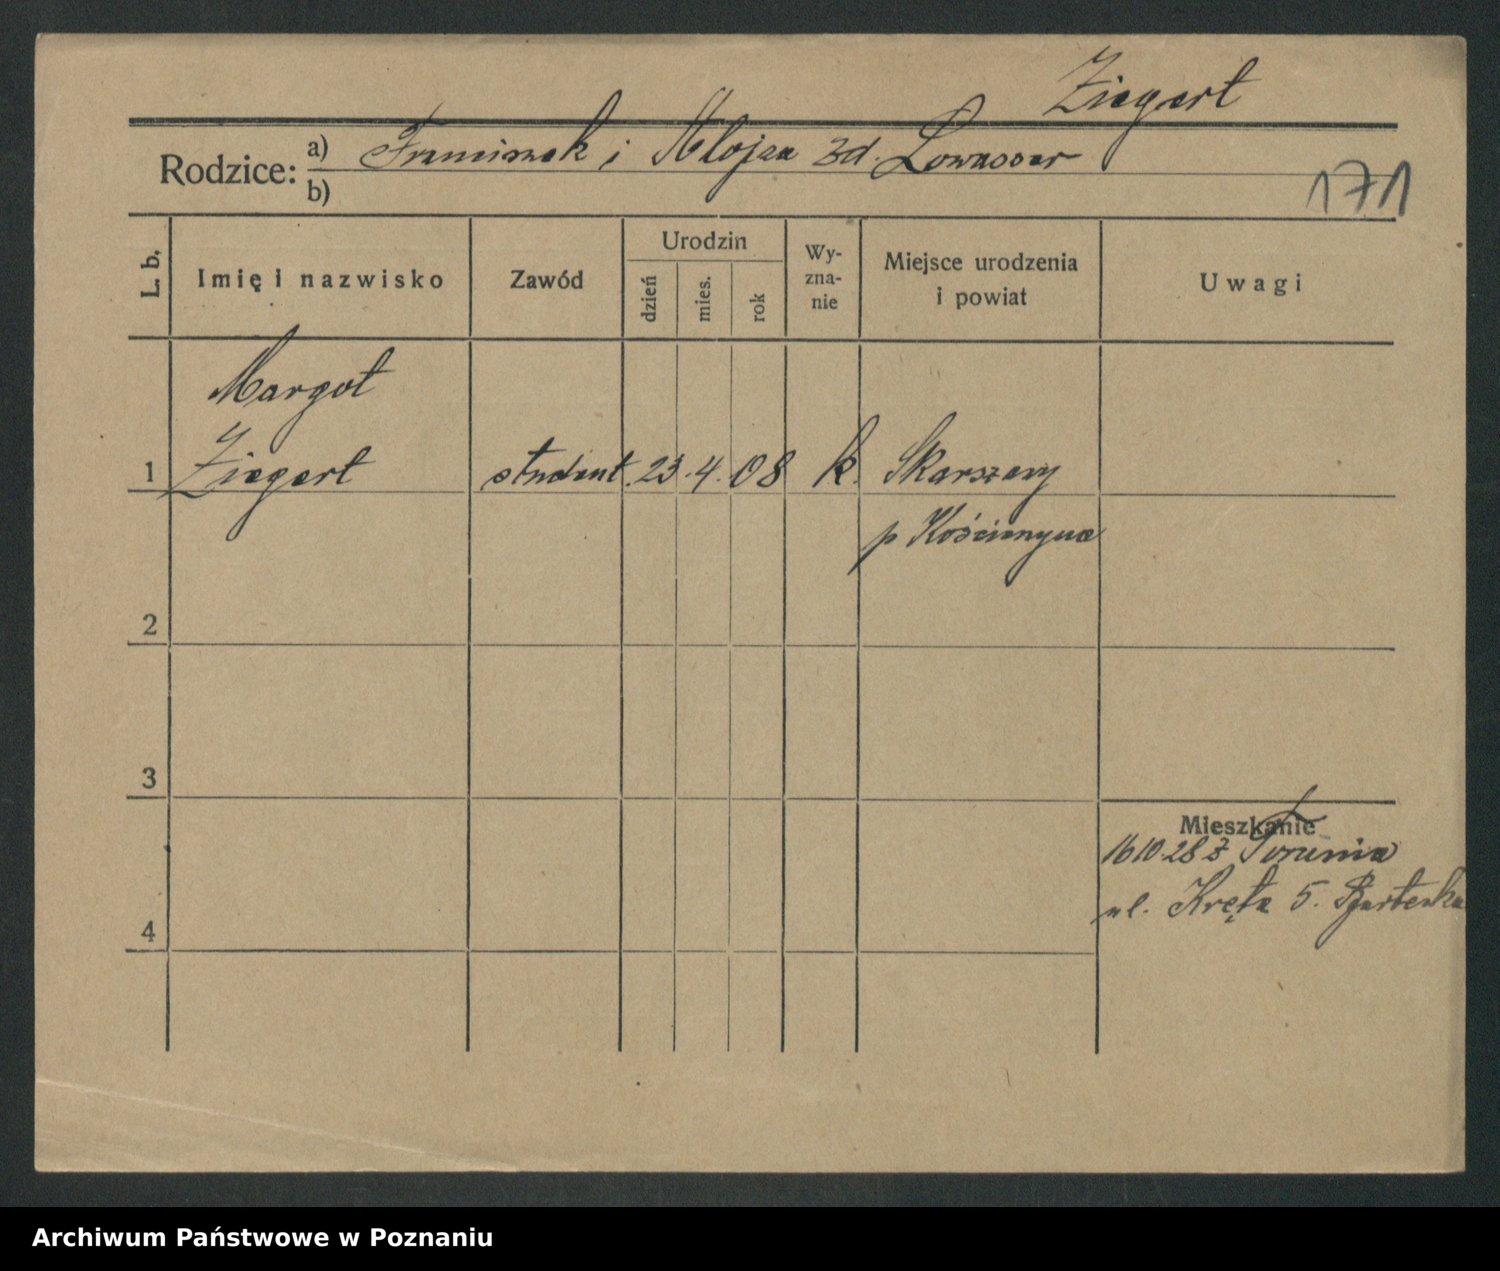 Ziegert
Rodzice: a) Franciszek i Alojza zd.
b)
171
L. b.
Imię i nazwisko
Zawód
Urodzin
dzień
mies.
rok
Wy-
zna-
nie
Miejsce urodzenia
i powiat
Uwagi
Margot
1 Ziegert student. 23. 4. 08 k. Skarszewy
p Kościerzyna
2
3
Mieszkanie
16 10 28 z Torunia
4
ul. Kręta 5.
Archiwum Państwowe w Poznaniu